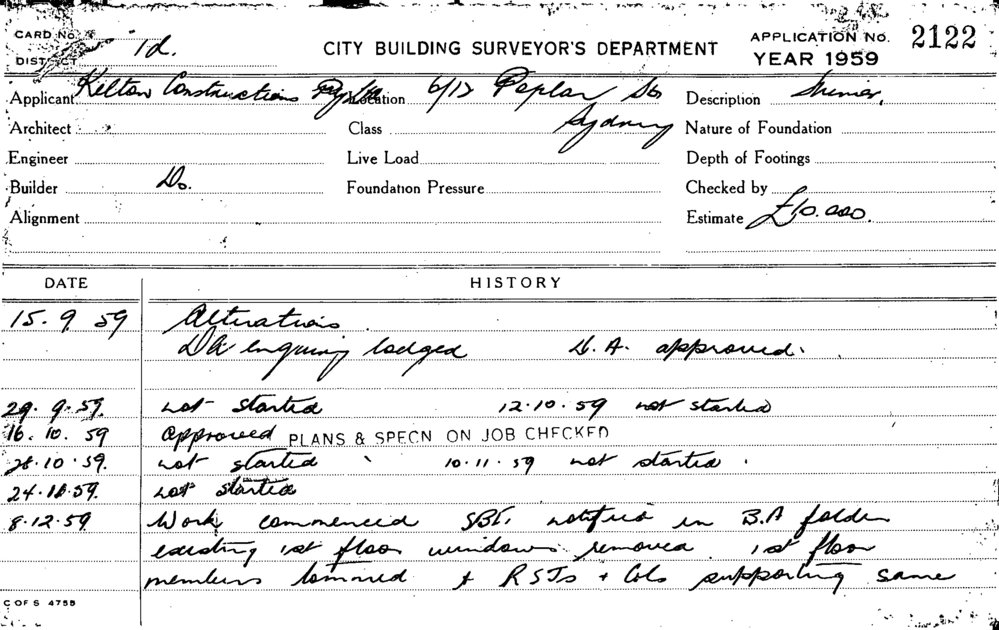 CARD No. 1d. CITY BUILDING SURVEYOR'S DEPARTMENT APPLICATION No. 2122
DISTRICT YEAR 1959
Applicant Kelton Constructions Pty Ltd Location 6/12 Poplar St Description
Architect Class Sydney Nature of Foundation
Engineer Live Load Depth of Footings
Builder Do. Foundation Pressure Checked by
Alignment Estimate £10.000.
DATE HISTORY
15. 9. 59 Alterations
DA enquiry lodged D.A. approved.
29. 9. 59. not started 12.10.59 not started
16. 10. 59 approved PLANS & SPECN ON JOB CHECKED
28.10.59. not started 10.11.59 not started.
24.11.59. not started
8.12.59. Work commenced SBI. notified in B.A folder
existing 1st floor windows removed. 1st floor
members + RSJs + Cols supporting same
C OF S 4759